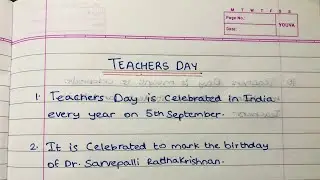 M T W T F S S
Page No.:
Date:
YOUVA
TEACHERS DAY
1. Teachers Day is Celebrated in India
every year on 5th September.
2. It is Celebrated to mark the birthday
of Dr. Sarvepalli Radhakrishnan.